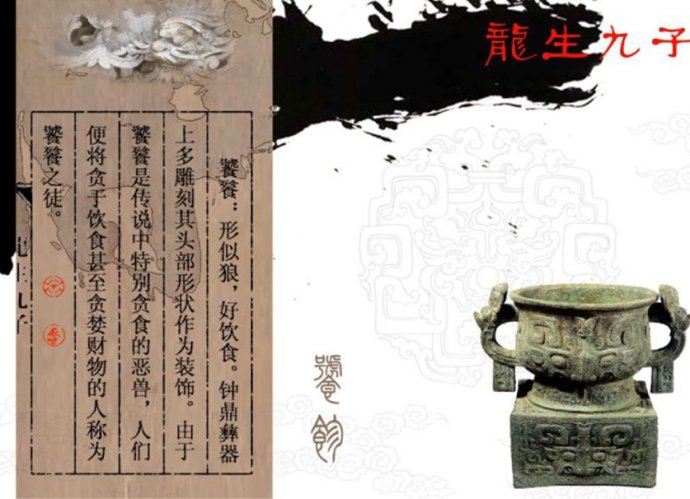 龍生九子
饕餮：形似狼，好饮食。钟鼎彝器
上多雕刻其头部形状作为装饰。由于
饕餮是传说中特别贪食的恶兽，人们
便将贪于饮食甚至贪婪财物的人称为
饕餮之徒。
生九子